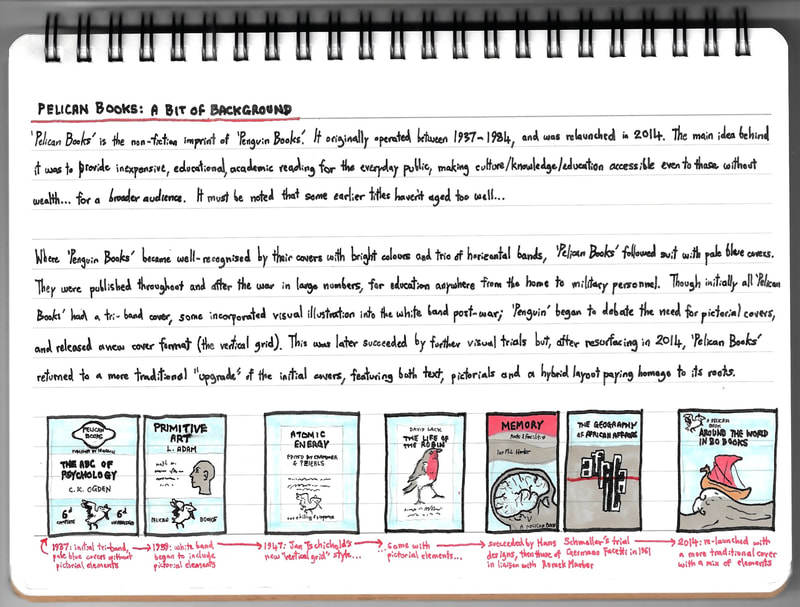 PELICAN BOOKS: A BIT OF BACKGROUND
'Pelican Books' is the non-fiction imprint of 'Penguin Books'. It originally operated between 1937-1984, and was relaunched in 2014. The main idea behind
it was to provide inexpensive, educational, academic reading for the everyday public, making culture/knowledge/education accessible even to those without
wealth... for a broader audience. It must be noted that some earlier titles haven't aged too well...
Where 'Penguin Books' became well-recognised by their covers with bright colours and trio of horizontal bands, 'Pelican Books' followed suit with pale blue covers.
They were published throughout and after the war in large numbers, for education anywhere from the home to military personnel. Though initially all 'Pelican
Books' had a tri-band cover, some incorporated visual illustration into the white band post-war; 'Penguin' began to debate the need for pictorial covers,
and released a new cover format (the vertical grid). This was later succeeded by further visual trials but, after resurfacing in 2014, 'Pelican Books'
returned to a more traditional "upgrade" of the initial covers, featuring both text, pictorials and a hybrid layout paying homage to its roots.
PELICAN
BOOKS
THE ABC OF
PSYCHOLOGY
C.K. OGDEN
6d 6d
PRIMITIVE
ART
L. ADAM
BOOKS
ATOMIC
ENERGY
EDITED BY
&
DAVID LACK
THE LIFE OF
THE ROBIN
MEMORY
Ian M L Hunter
A PELICAN BOOK
THE GEOGRAPHY
OF AFRICAN AFFAIRS
africa
A PELICAN
BOOK
AROUND THE WORLD
IN 80 BOOKS
1937: initial tri-band,
pale blue covers without
pictorial elements
1939: white band
began to include
pictorial elements
1947: Jan Tschichold's
new "vertical grid" style...
...some with
pictorial elements...
succeeded by Hans Schmoller's trial
designs, then those of Germano Facetti in 1961
in liaison with Romek Marber
2014: re-launched with
a more traditional cover
with a mix of elements